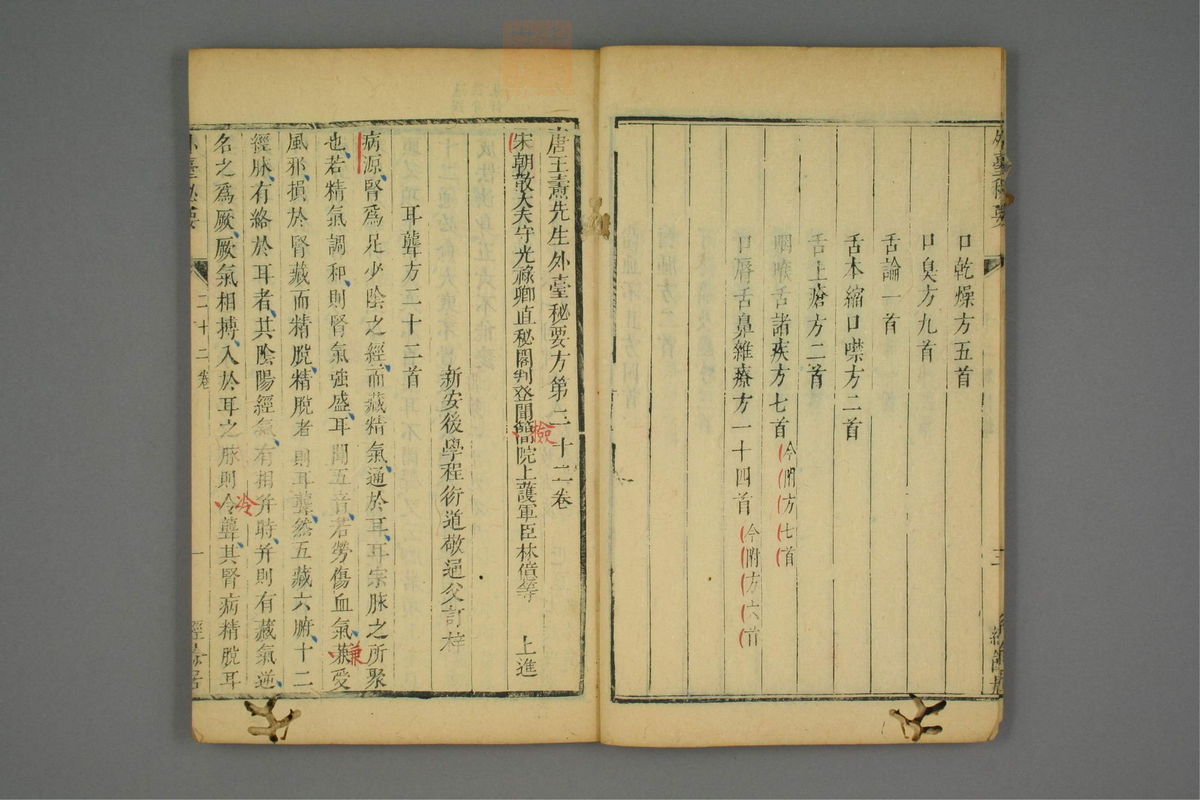 口乾燥方五首
口臭方九首
舌論一首
舌本縮口噤方二首
舌上瘡方二首
咽喉舌諸疾方七首今附方七首
口唇舌鼻雜療方一十四首今附方六首
唐王燾先生外臺秘要方第二十二卷
宋朝散大夫守光祿卿直秘閣判登聞簡院上護軍臣林億等 上進
檢
新安後學程衍道敬通父訂梓
耳聾方二十二首
病源腎爲足少陰之經而藏精氣通於耳耳宗脉之所聚
也若精氣調和則腎氣強盛耳聞五音若勞傷血氣兼受
兼
風邪損於腎藏而精脫精脫者則耳聾然五藏六腑十二
經脉有絡於耳者其陰陽經氣有相并時并則有藏氣逆
名之爲厥厥氣相搏入於耳之脉則令聾其腎病精脫耳
冷
外臺秘要
二十二卷
一
經餘居